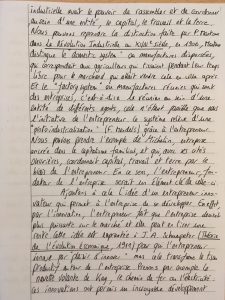 industrielle avait le pouvoir de rassembler et de coordonner
au sein d'une entité, le capital, le travail et la terre.
Nous pouvons reprendre la distinction faite par P. Mantoux
dans La Révolution Industrielle au XVIIIe siècle, en 1900, Mantoux
distingue le "domestic system" ou manufactures dispersées,
qui correspondent aux agriculteurs qui l'hiver
pour le marchand qui allait vendre cela en ville après.
Et le "factory system" ou manufactures réunies qui sont
des entreprises, c'est-à-dire la réunion au sein d'une
entité de différents agents, cela n'étant possible que sous
l'initiative de l'entrepreneur. Le système relève d'une
"proto-industrialisation" (F. Mendels) grâce à l'entrepreneur.
Nous pouvons prendre l'exemple de Michelin, entreprise
ancrée dans le capitalisme familial, et qui avec ses cités
ouvrières, coordonnait capital, travail et terre par le
biais de l'entrepreneur. En ce sens, l'entrepreneur, fon-
dateur de l'entreprise serait un élément clé de celle-ci.
Ajoutons à cela l'idée d'un entrepreneur inno-
vateur qui permet à l'entreprise de se développer. En effet,
par l'innovation, l'entrepreneur fait que l'entreprise devient
plus puissante sur le marché et elle peut en tirer une
rente. Cette idée est empruntée à J. A. Schumpeter (Théorie
de l'évolution économique, 1911) pour qui l'entrepreneur
innove par plaisir d'innover mais cela transforme le tissu
productif autour de l'entreprise. Prenons par exemple la
navette volante de Kay, le chemin de fer ou l'électricité:
ces innovations ont permis un incroyable développement